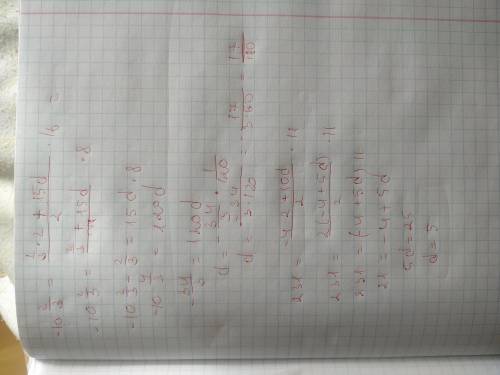 -10 2/3 = (1/3 · 2 + 15d)/2 · 16 =
-10 2/3 = (2/3 + 15d) · 8
-10 2/3 - 2/3 = 15d · 8
-10 4/3 = 120d
-34/3 = 120d
d = -34/3 · 1/120
d = -34/(3·120) = -17/(3·60) = 17/180
231 = (-4·2+10d)/2 · 11
231 = 2(-4+5d)/2 · 11
231 = (-4+5d) 11
21 = -4+5d
5d = 25
d = 5